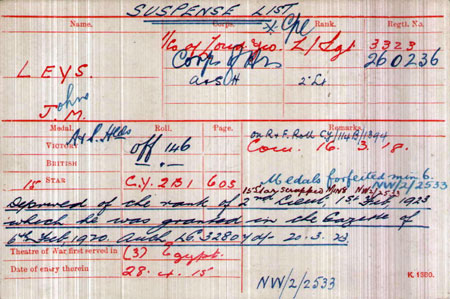 SUSPENSE LIST
Name. Corps. Rank. Regtl. No.
x Cpl
LEYS. 1/Co of Lond. Yeo. L/Sgt 3323
Corps of Hrs 260236
John M. A&SH 2"Lt
Medal. A & S. Hdrs Roll. Page. Remarks.
on R & F. Roll CY/114B/1394
VICTORY off 146 Com. 16. 3. 18.
BRITISH — " —
Medals forfeited min 6.
NW/2/2533
15 STAR C.Y. 2B1 605 15 Star scrapped NW/2/2533
Deprived of the rank of 2nd Lieut. 1st Feb, 1923
which he was granted in the Gazette of
6th Feb, 1920. Auth LG. 32804 d/ 20. 3. 23.
Theatre of War first served in (3) Egypt.
Date of entry therein 28. 4. 15
NW/2/2533
K. 1380.